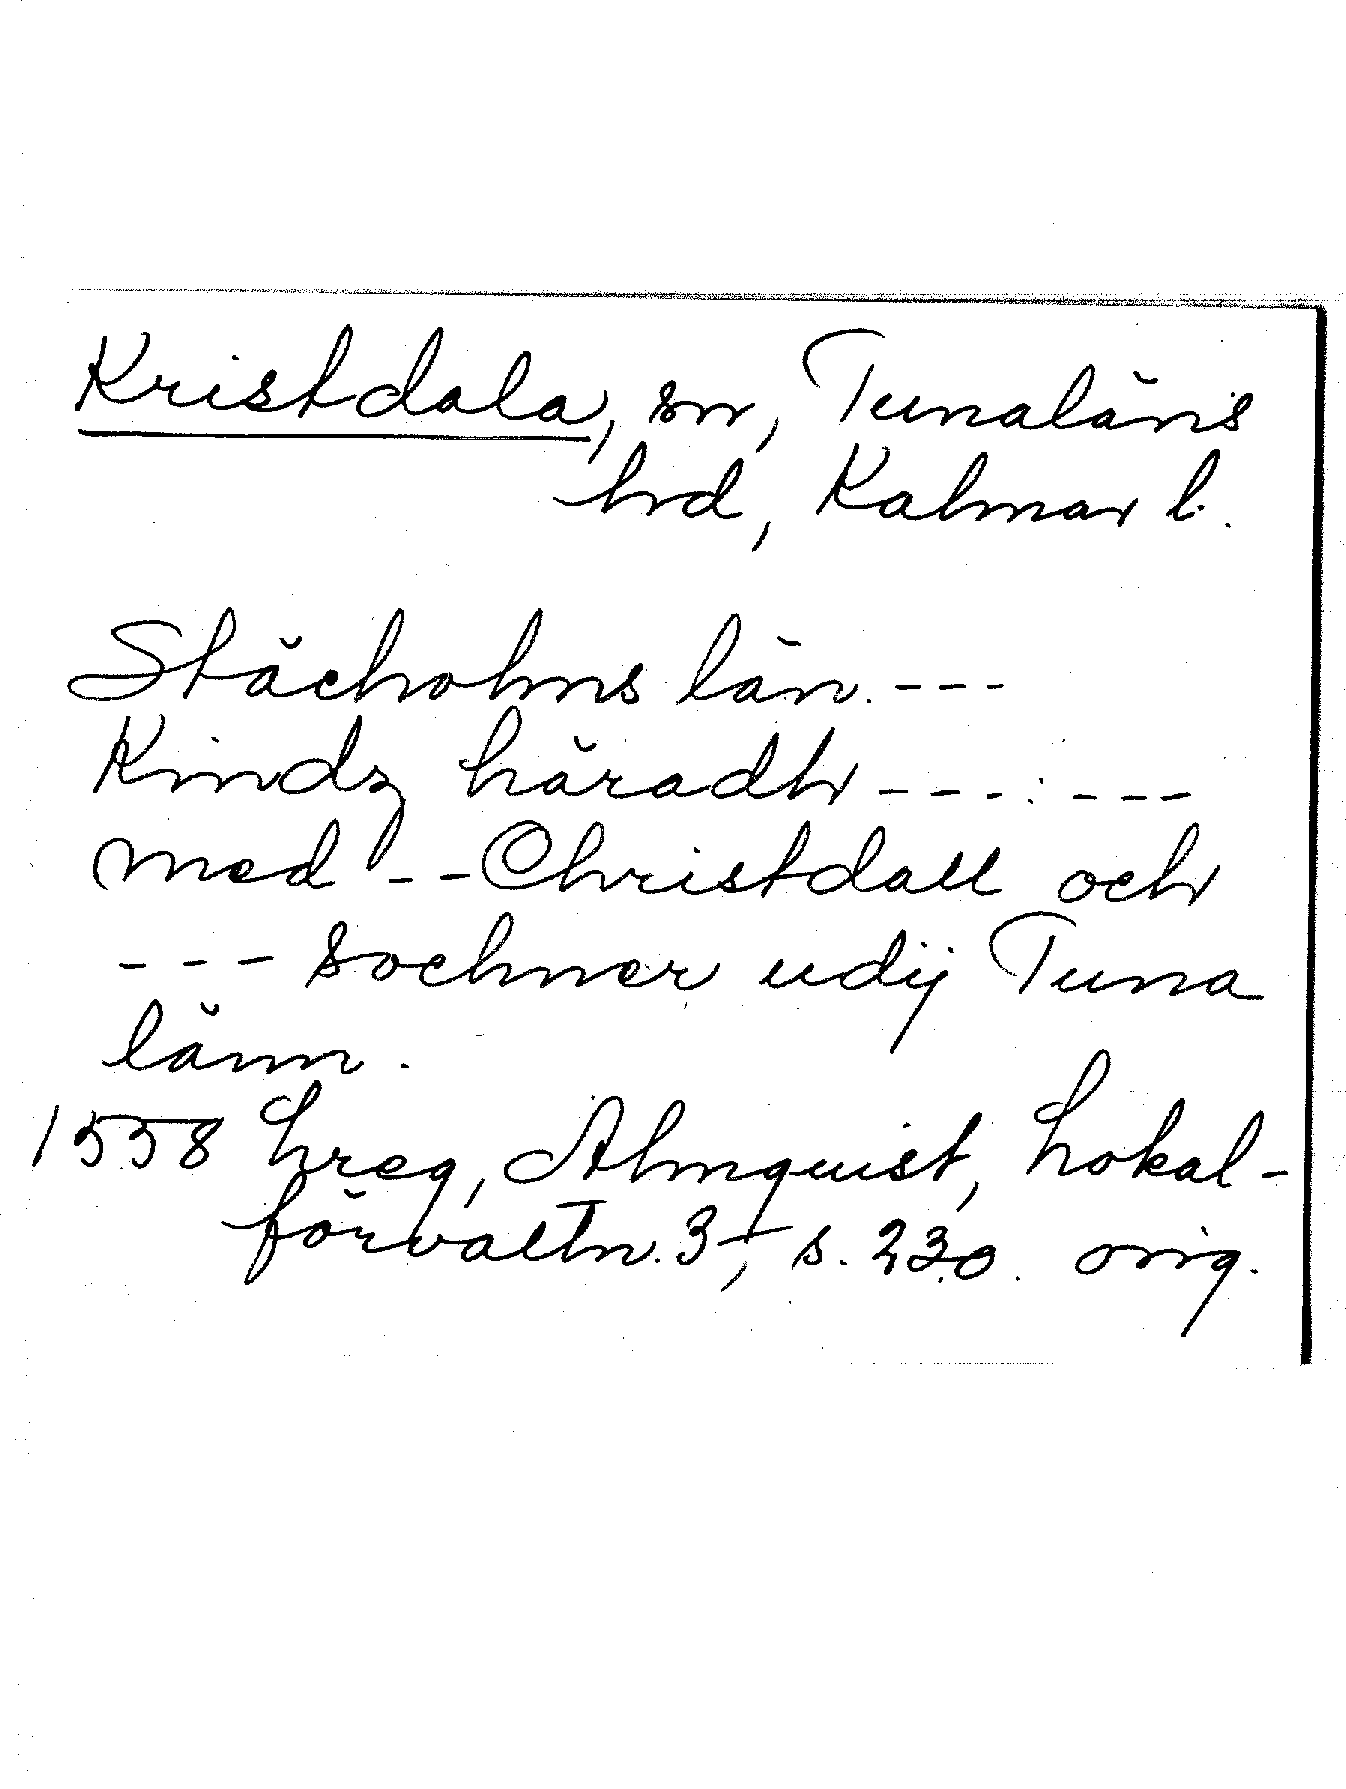 Kristdala, sn, Tunaläns
hd, Kalmar l.
Stächolms län. ---
Kindz häradh --- : ---
med -- Christdall och
--- sochner udij Tuna
länn.
1558 Lreg, Almquist, Lokal-
förvaltn. 3, s. 230. orig.